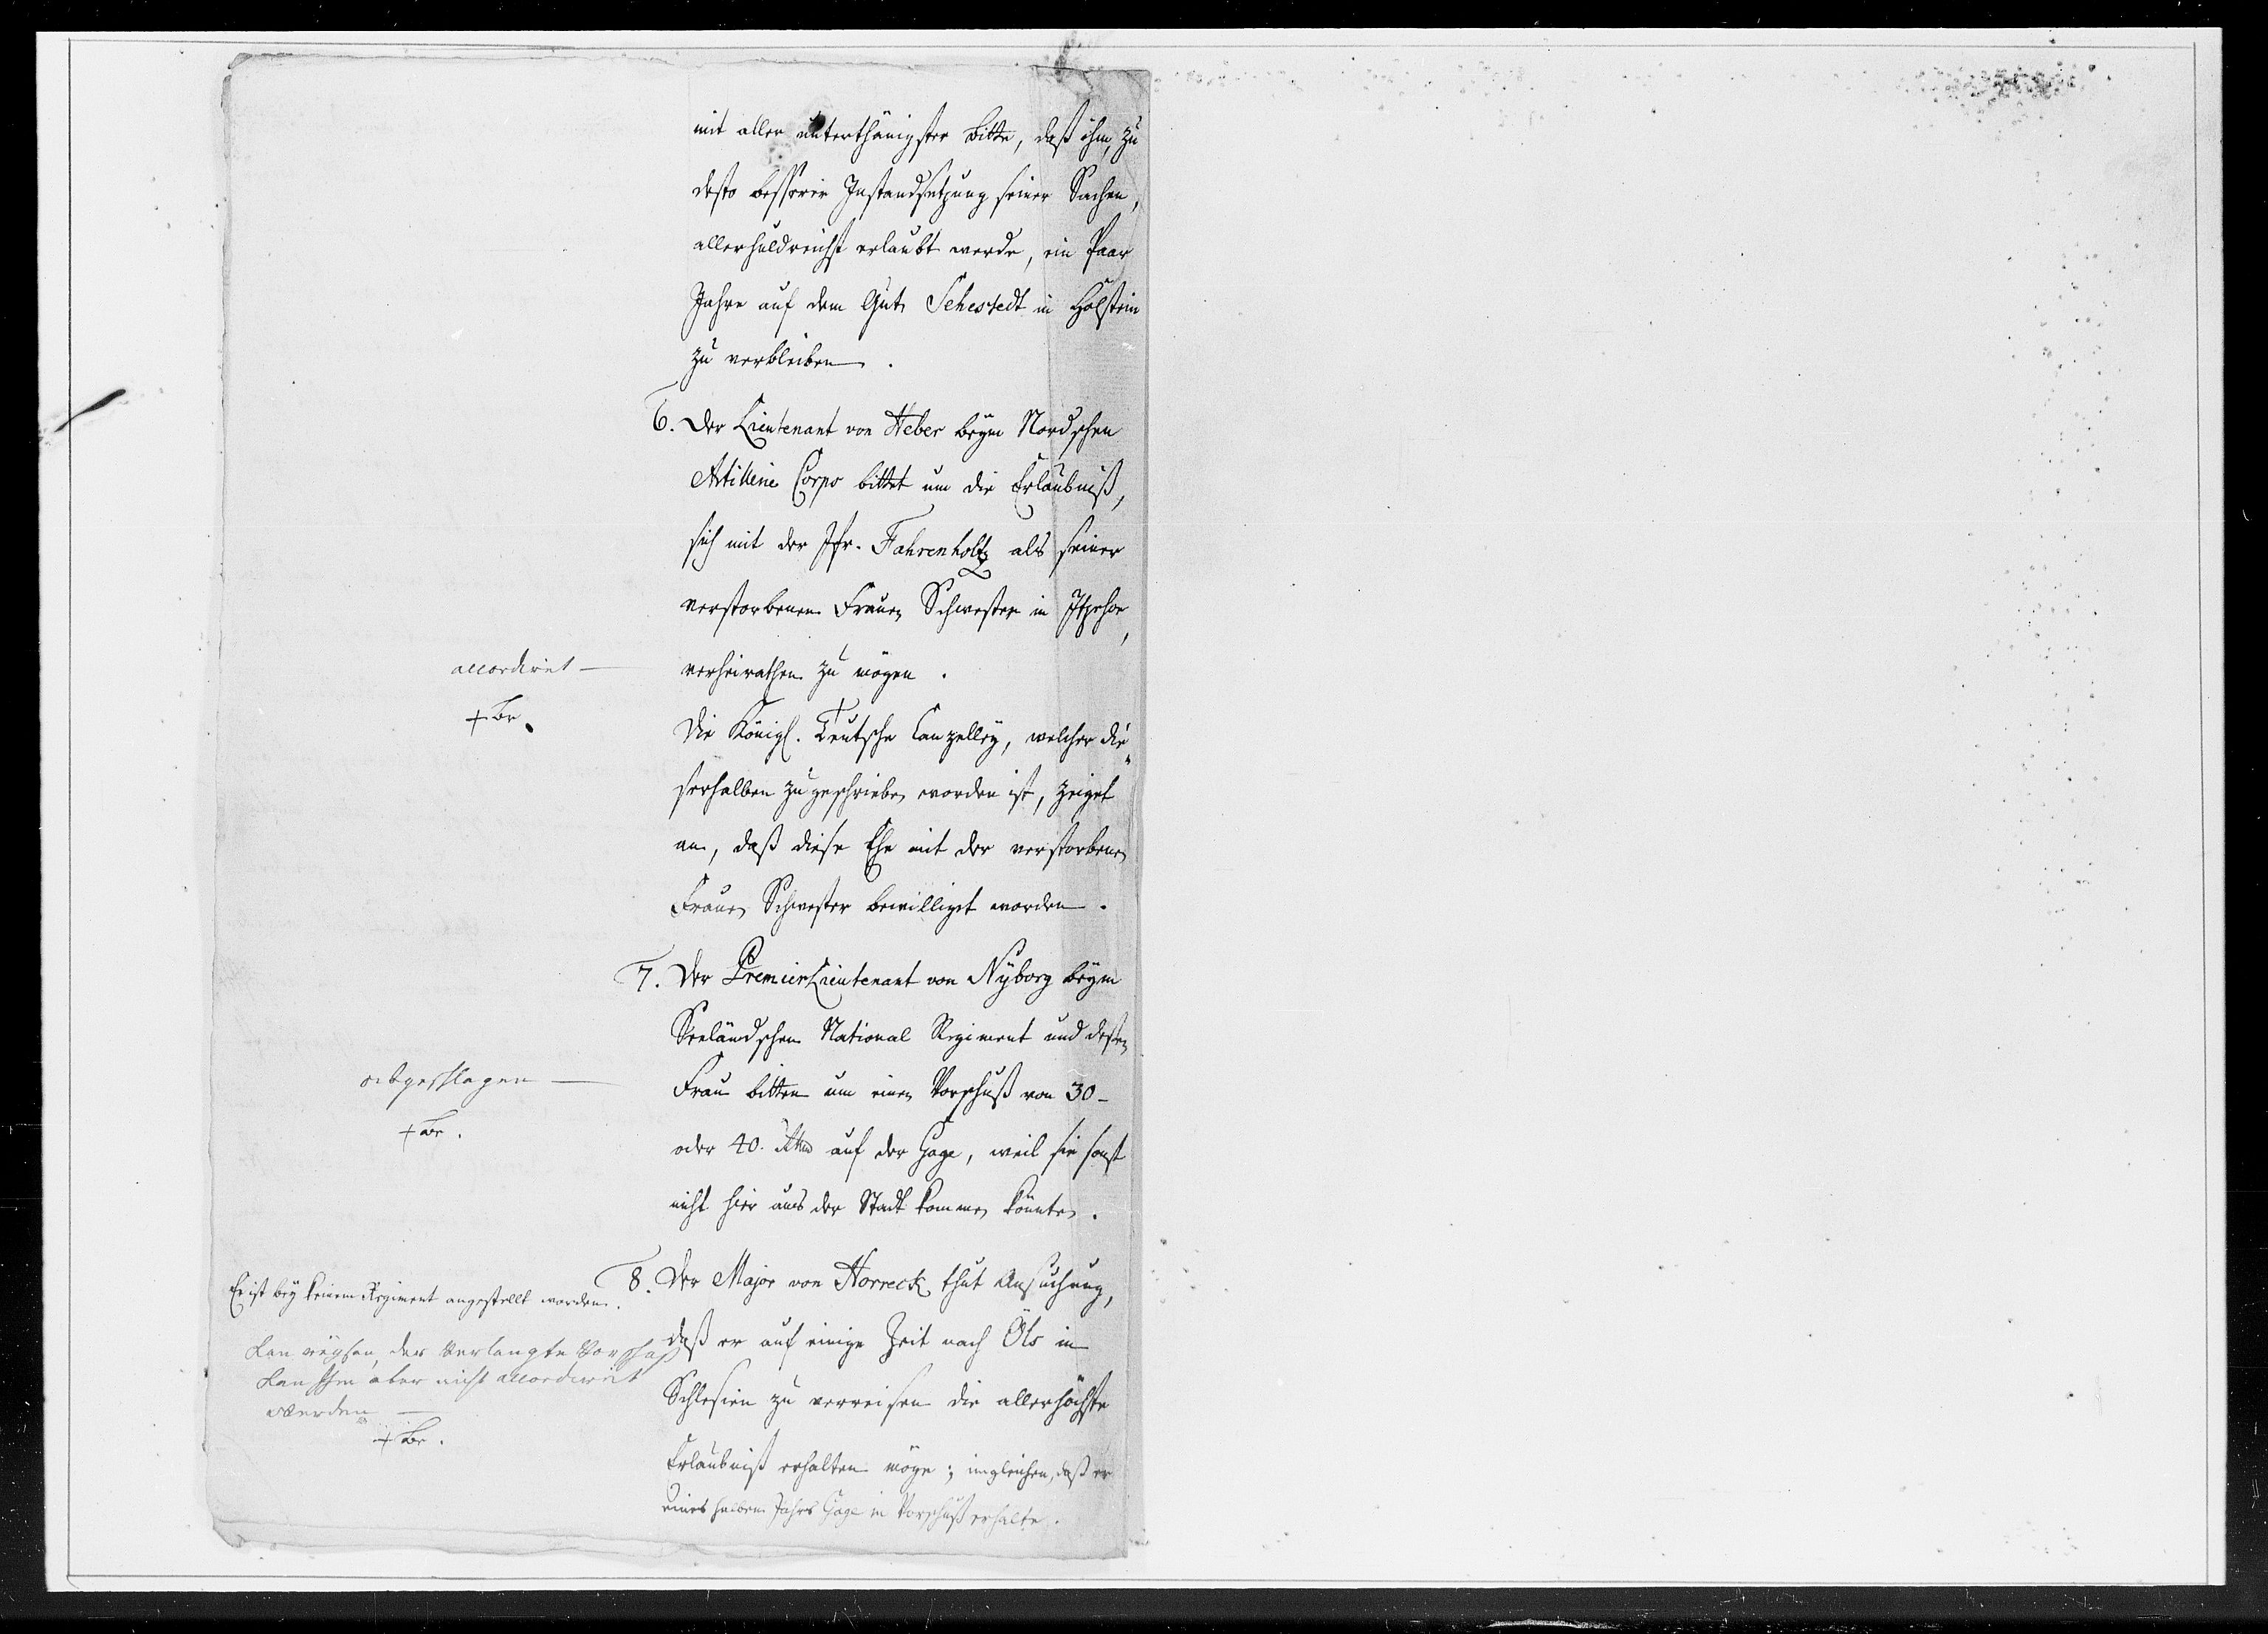 mit aller unterthänigster Bitte, daß ihm, zu
desto besserer Instandsetzung seiner Sachen,
allerhuldreichst erlaubt werde, ein Paar
Jahre auf dem Gute Sehestedt in Holstein
zu verbleiben.
6. Der Lieutenant von Heber beym Nordschen
Artillerie Corps bittet um die Erlaubniß,
sich mit der Jfr. Fahrenholtz als seiner
verstorbenen Frauen Schwester in Itzehoe,
accordiret —
verheirathen zu mögen.
+ Br.
Die Königl. Teutsche Canzelley, welcher die„
serhalben zugeschrieben worden ist, zeiget
an, daß diese Ehe mit der verstorbenen
Frauen Schwester bewilliget worden.
7. Der Premier Lieutenant von Nyborg beym
Seeländschen National Regiment und dessen
abgeschlagen —
Frau bitten um einen Vorschuß von 30 –
+ Br.
oder 40. Rthlr auf der Gage, weil sie sonst
nicht hier aus der Stadt kommen könnten.
8. Der Major von Horreck thut Ansuchung,
Er ist bey keinem Regiment angestellt worden.
daß er auf einige Zeit nach Öls in
Kan reysen, der verlangte Vorschuß
Kan Ihm aber nicht accordiret
Schlesien zu verreisen die allerhöchste
werden —
+ Br.
Erlaubniß erhalten möge; imgleichen, daß er
eines halben Jahrs Gage in Vorschuß erhalte.